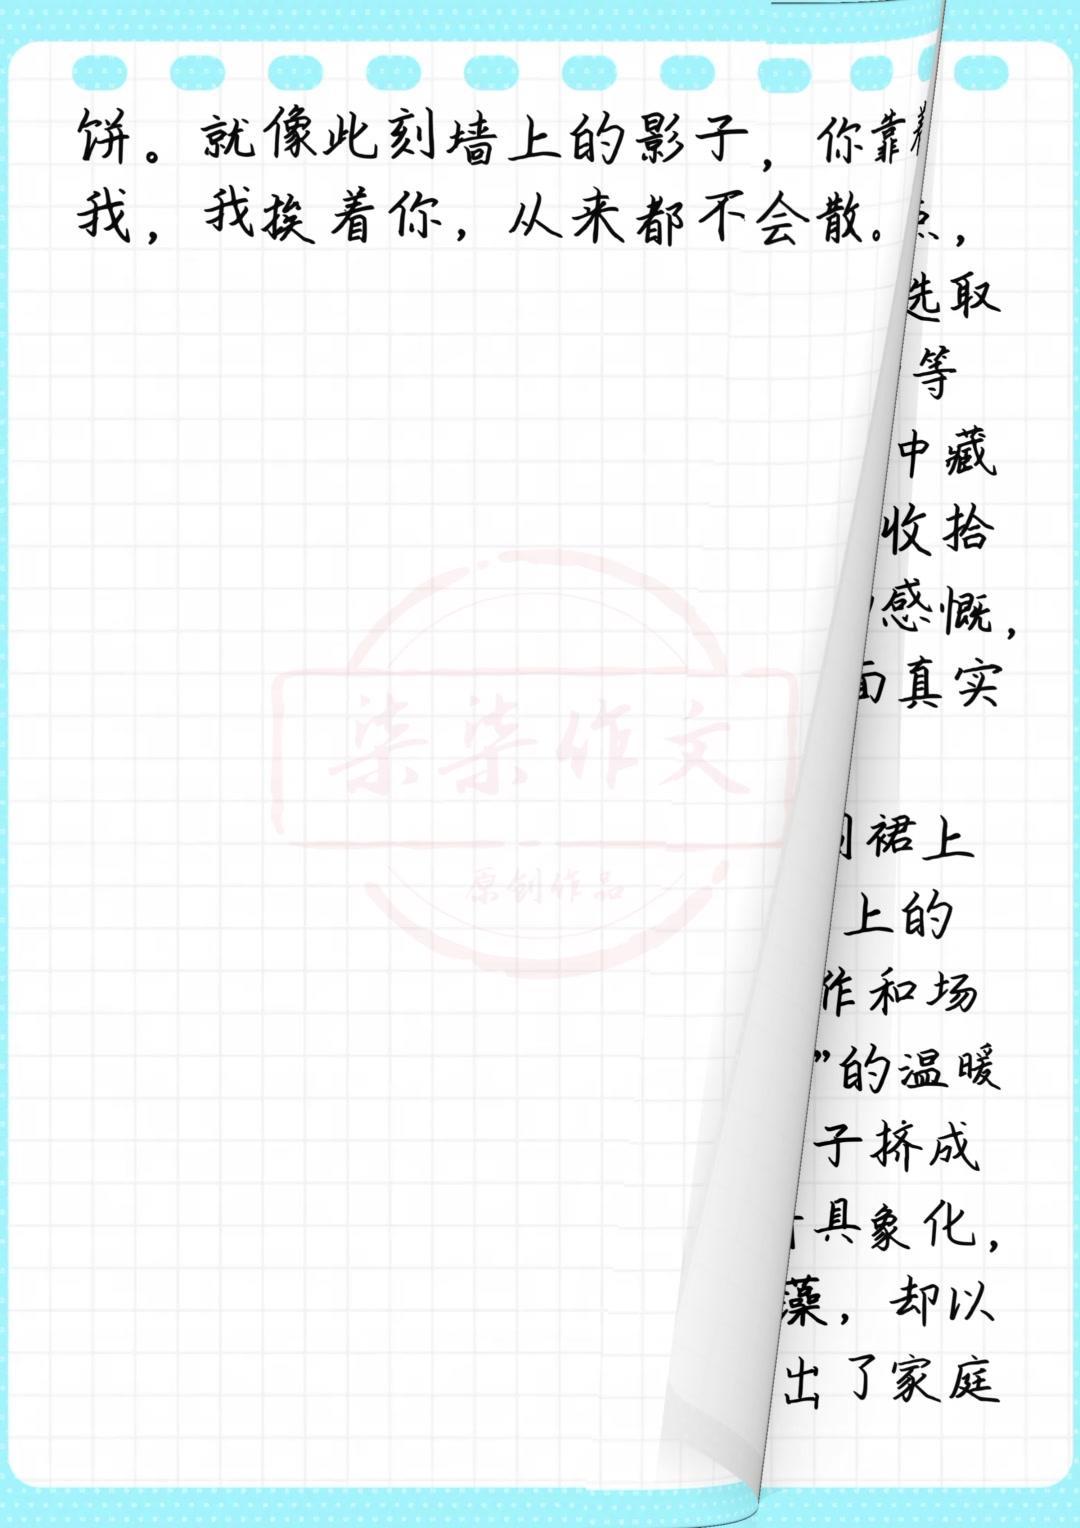 饼。就像此刻墙上的影子，你靠着
我，我挨着你，从来都不会散。
点，
选取
等
中藏
收拾
感慨，
面真实
裙上
上的
作和场
”的温暖
子挤成
具象化，
藻，却以
出了家庭
柒柒作文
原创作品